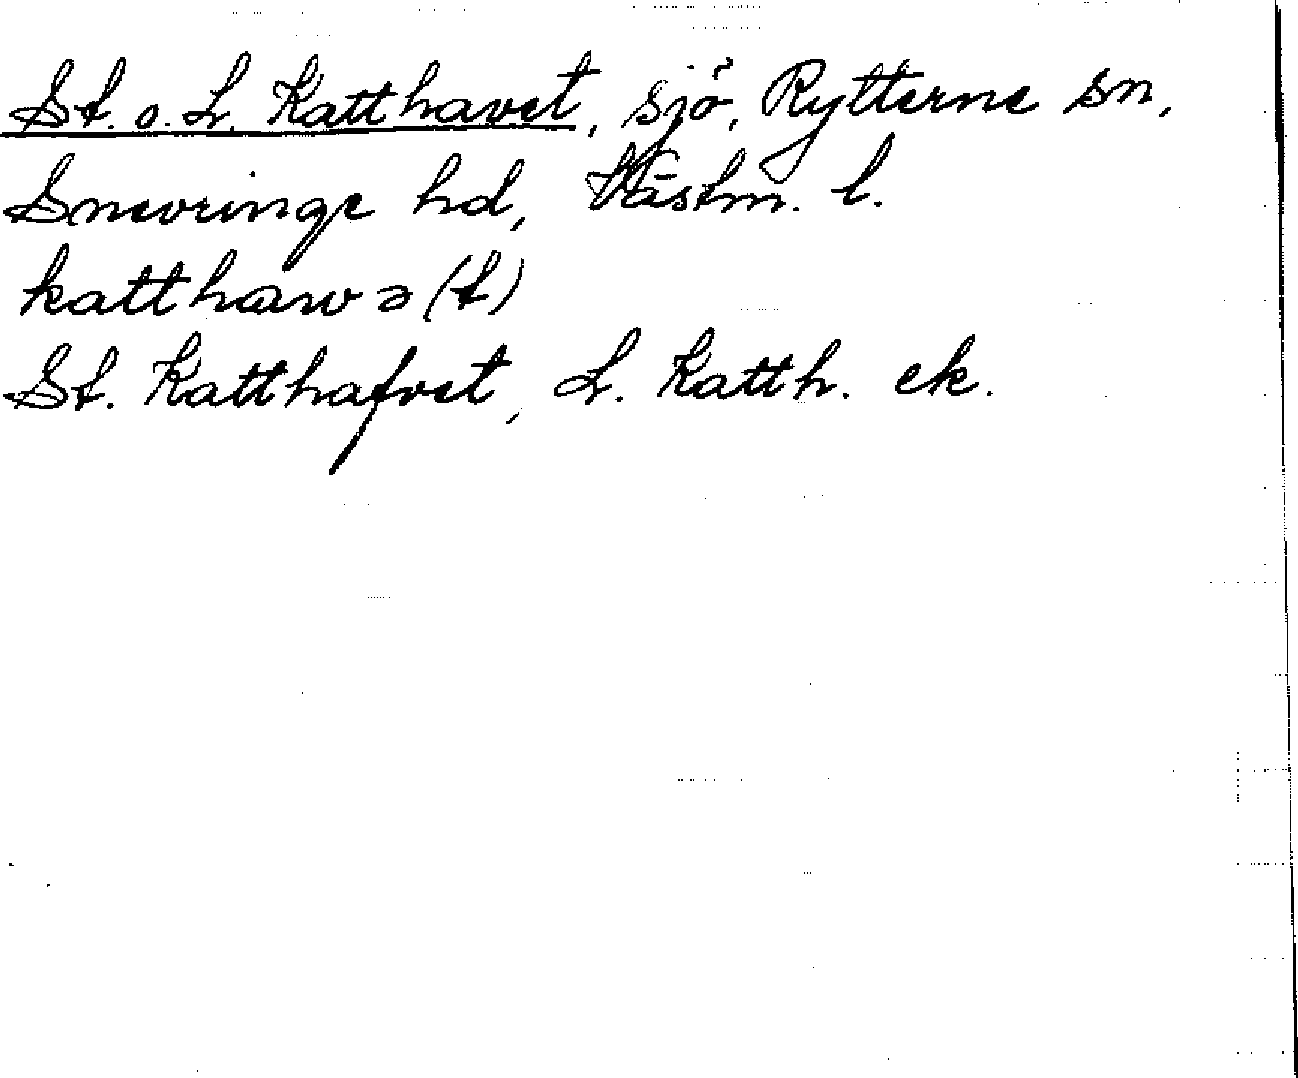 St. o. L. Katthavet, sjö, Rytterne sn,
Snevringe hd, Västm. l.
katthavə(t)
St. Katthafvet, L. Katth. ek.